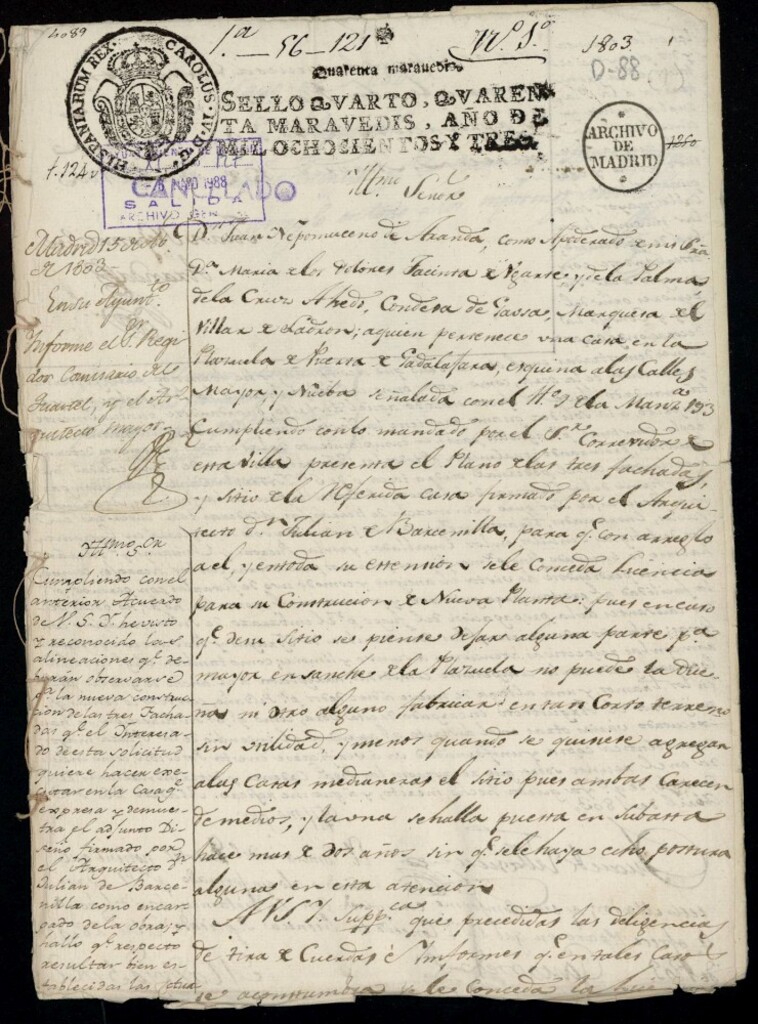 4089
1.ª — 56 — 121
Nº 5º
1803
1
D-88
Quarenta maravedis
HISPANIARUM REX. CAROLUS. IV. D. G.
SELLO QVARTO, QVAREN
TA MARAVEDIS, AÑO DE
MIL OCHOCIENTOS Y TRES.
ARCHIVO
DE
MADRID
1988
CANCELADO
SALIDA
ARCHIVO GEN
Yllmo. Señor
Madrid 15 de
de 1803
En su Ayunt.to
Informe el Sr. Regi
dor Comisario del
Quartel, y el Ar
quitecto mayor
Dn. Juan Nepomuceno de Aranda, como Apoderado de mi Sra.
Da. Maria de los Dolores Jacinta de Ygarte, y de la Palma,
de la Cruz Ahedo, Condesa de Gausa, Marquesa del
Villar de Ladron; a quien pertenece una casa, en la
Plazuela de Puerta de Guadalajara, esquina a las Calles
Mayor, y Nueba señalada con el No. de la Manza. 193
Cumpliendo con lo mandado por el Sr. Correxidor de
esta Villa presenta el Plano de las tres fachadas,
y sitio de la Referida casa firmado por el Arqui
tecto dn. Julian de Barcenilla, para q.e con arreglo
a el, y en toda su estension se le Conceda Licencia
para su Construcion de Nueva Planta: pues en caso
q.e de su Sitio se piense dejar alguna parte p.a
mayor ensanche de la Plazuela no puede la Due
ña, ni otro alguno fabricar en tan Corto terreno
sin utilidad, y menos quando se quisiese agregar
a las Casas medianeras el sitio pues ambas Carecen
de medios, y la una se halla puesta en Subasta
hace mas de dos años sin q.e se le haya echo postura
alguna en esta atencion
A V.S.Y. Suppca. que precedidas las diligencias
de tira de Cuerdas e Informes q.e en tales Casos
se acostumbra se le Conceda la
Yllmo. Sr.
Cumpliendo con el
anterior Acuerdo
de V. S. Y. he visto
y reconocido las
alineaciones q.e de
beran observarse
la nueva construc
cion de las tres Facha
das q.e el Interesa
do de esta solicitud
quiere hacer exe
cutar en la Casa q.e
expresa y demues
tra el adjunto Di
seño firmado por
el Arquitecto dn.
Julian de Barce
nilla como encar
gado de la obra; y
hallo q.e respecto
resultar bien es
tablecidas las